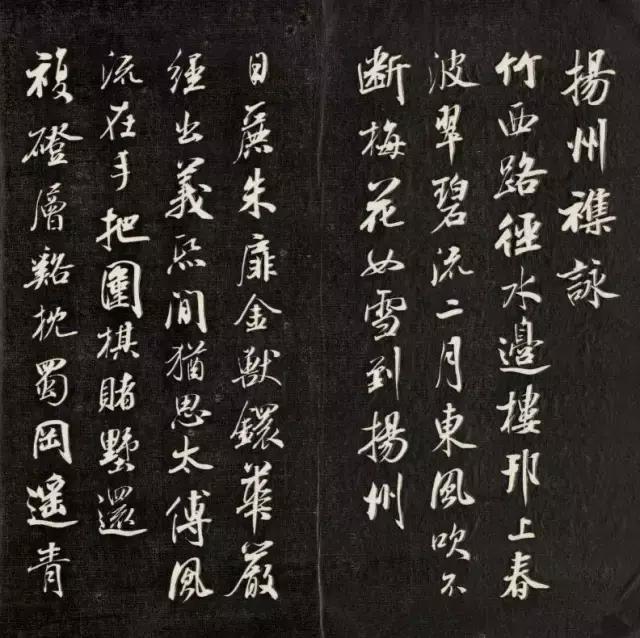 揚州襍詠
竹西路徑水邊樓邗上春
波翠碧流二月東風吹不
断梅花如雪到揚州
日朱扉金獸鐶華嚴
經出義熙間猶思太傅風
流在手把圍棋賭墅還
複磴層谿枕蜀岡遙青